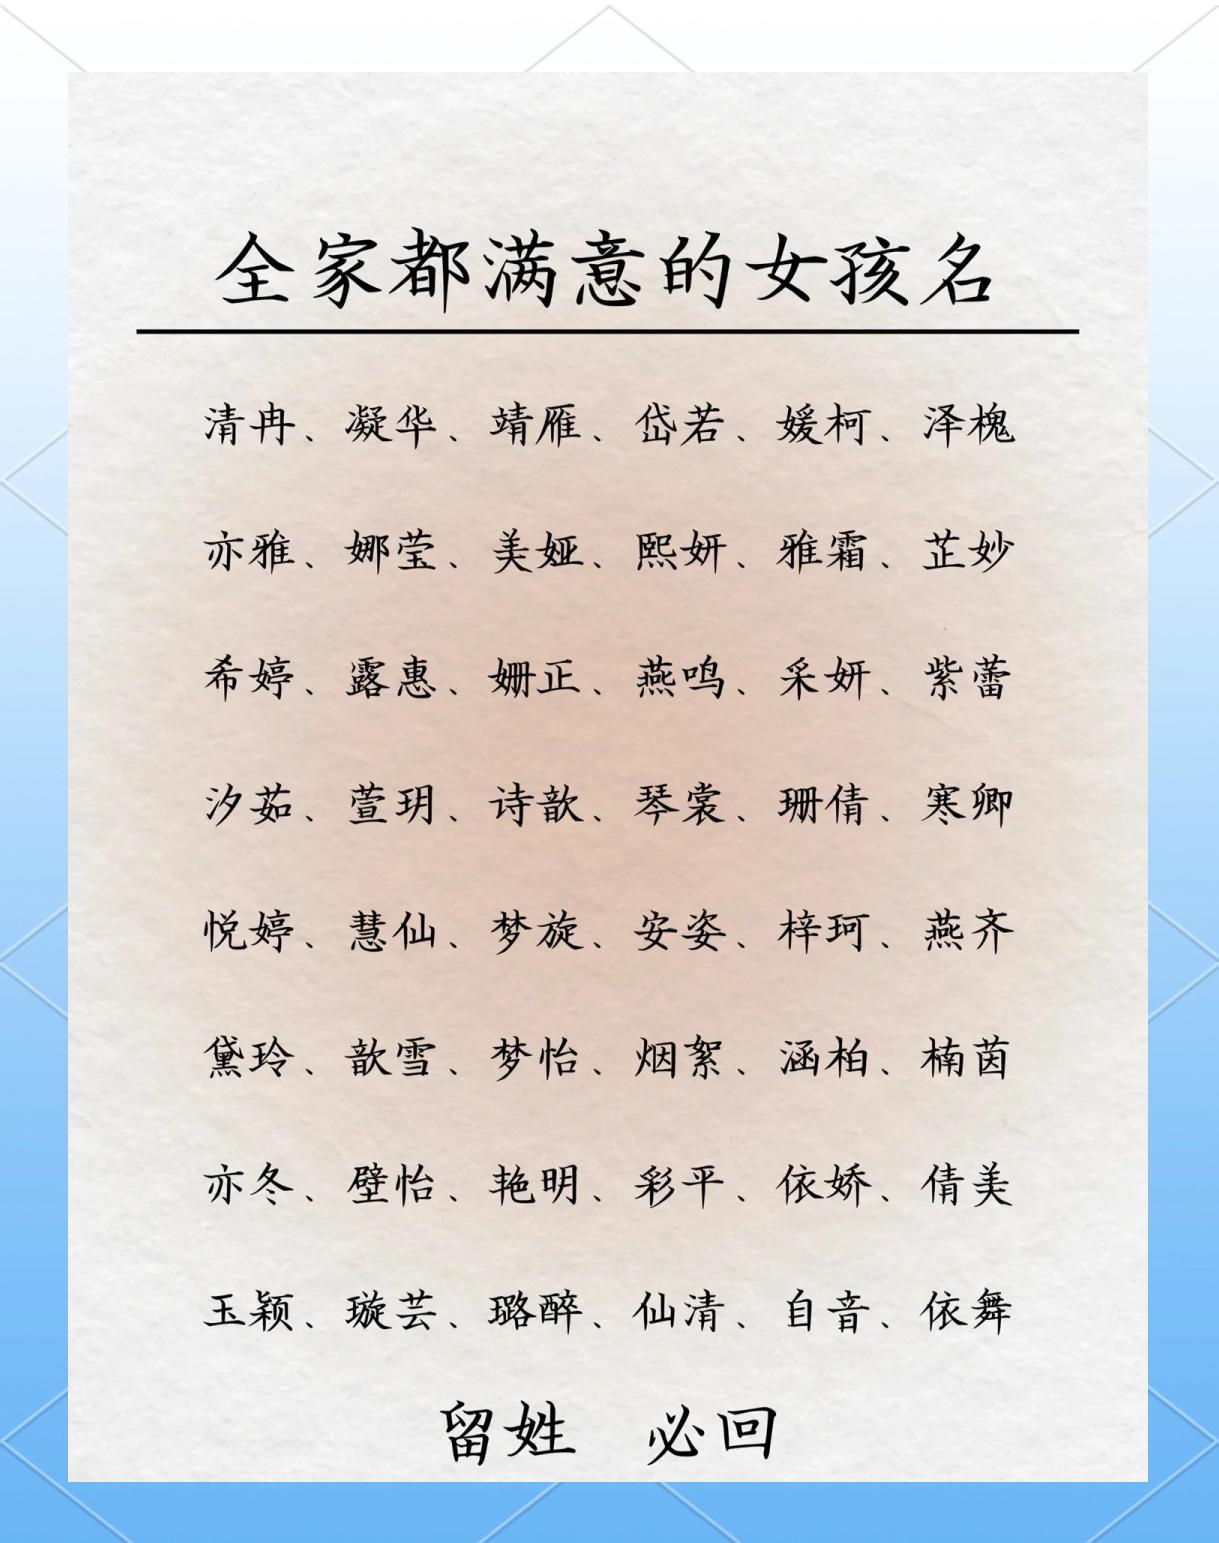 全家都满意的女孩名
清冉、凝华、靖雁、岱若、媛柯、泽槐
亦雅、娜莹、美娅、熙妍、雅霜、芷妙
希婷、露惠、姗正、燕鸣、采妍、紫蕾
汐茹、萱玥、诗歆、琴裳、珊倩、寒卿
悦婷、慧仙、梦旋、安姿、梓珂、燕齐
黛玲、歆雪、梦怡、烟絮、涵柏、楠茵
亦冬、壁怡、艳明、彩平、依娇、倩美
玉颖、璇芸、璐醉、仙清、自音、依舞
留姓 必回